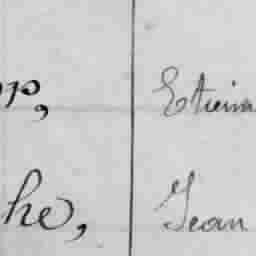 or, Etienn
he, Jean